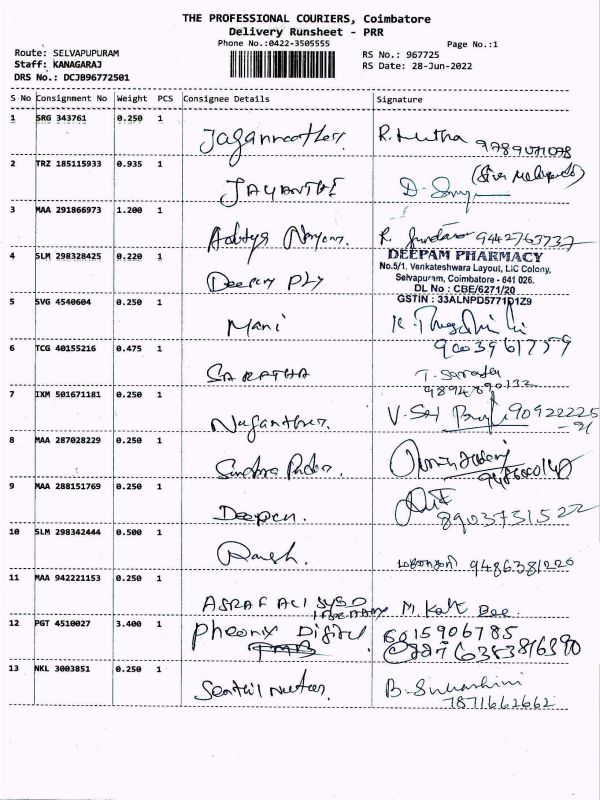 THE PROFESSIONAL COURIERS, Coimbatore
Delivery Runsheet - PRR
Phone No.:0422-3505555
Page No.:1
Route: SELVAPUPURAM
Staff: KANAGARAJ
DRS No.: DCJB96772501
RS No.: 967725
RS Date: 28-Jun-2022
S No Consignment No Weight PCS Consignee Details Signature
1 SRG 343761 0.250 1
R. Mutha
2 TRZ 185115933 0.935 1
JAYANTHI
3 MAA 291866973 1.200 1
Aditya
R. Sundar 9442763737
4 SLM 298328425 0.220 1
Deepam Ply
DEEPAM PHARMACY
No.5/1, Venkateshwara Layout, LIC Colony,
Selvapuram, Coimbatore - 641 026.
DL No : CBE/6271/20
GSTIN : 33ALNPD5771D1Z9
5 SVG 4540604 0.250 1
Mani
9003961759
6 TCG 40155216 0.475 1
SARATHA
T. Saratha
9894890132
7 IXM 501671181 0.250 1
8 MAA 287028229 0.250 1
9 MAA 288151769 0.250 1
Deepan.
8903731522
10 SLM 298342444 0.500 1
9486381220
11 MAA 942221153 0.250 1
ASRAF ALI SYED
12 PGT 4510027 3.400 1
Pheonix Digital
6015906785
6383816390
13 NKL 3003851 0.250 1
B. Subashini
7871662662